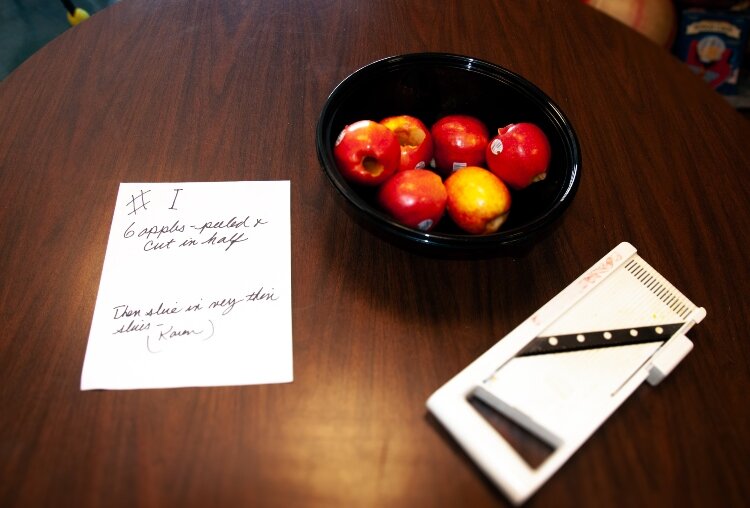 # I
6 apples - peeled &
cut in half
Then slice in very thin
slices -
(Karen)